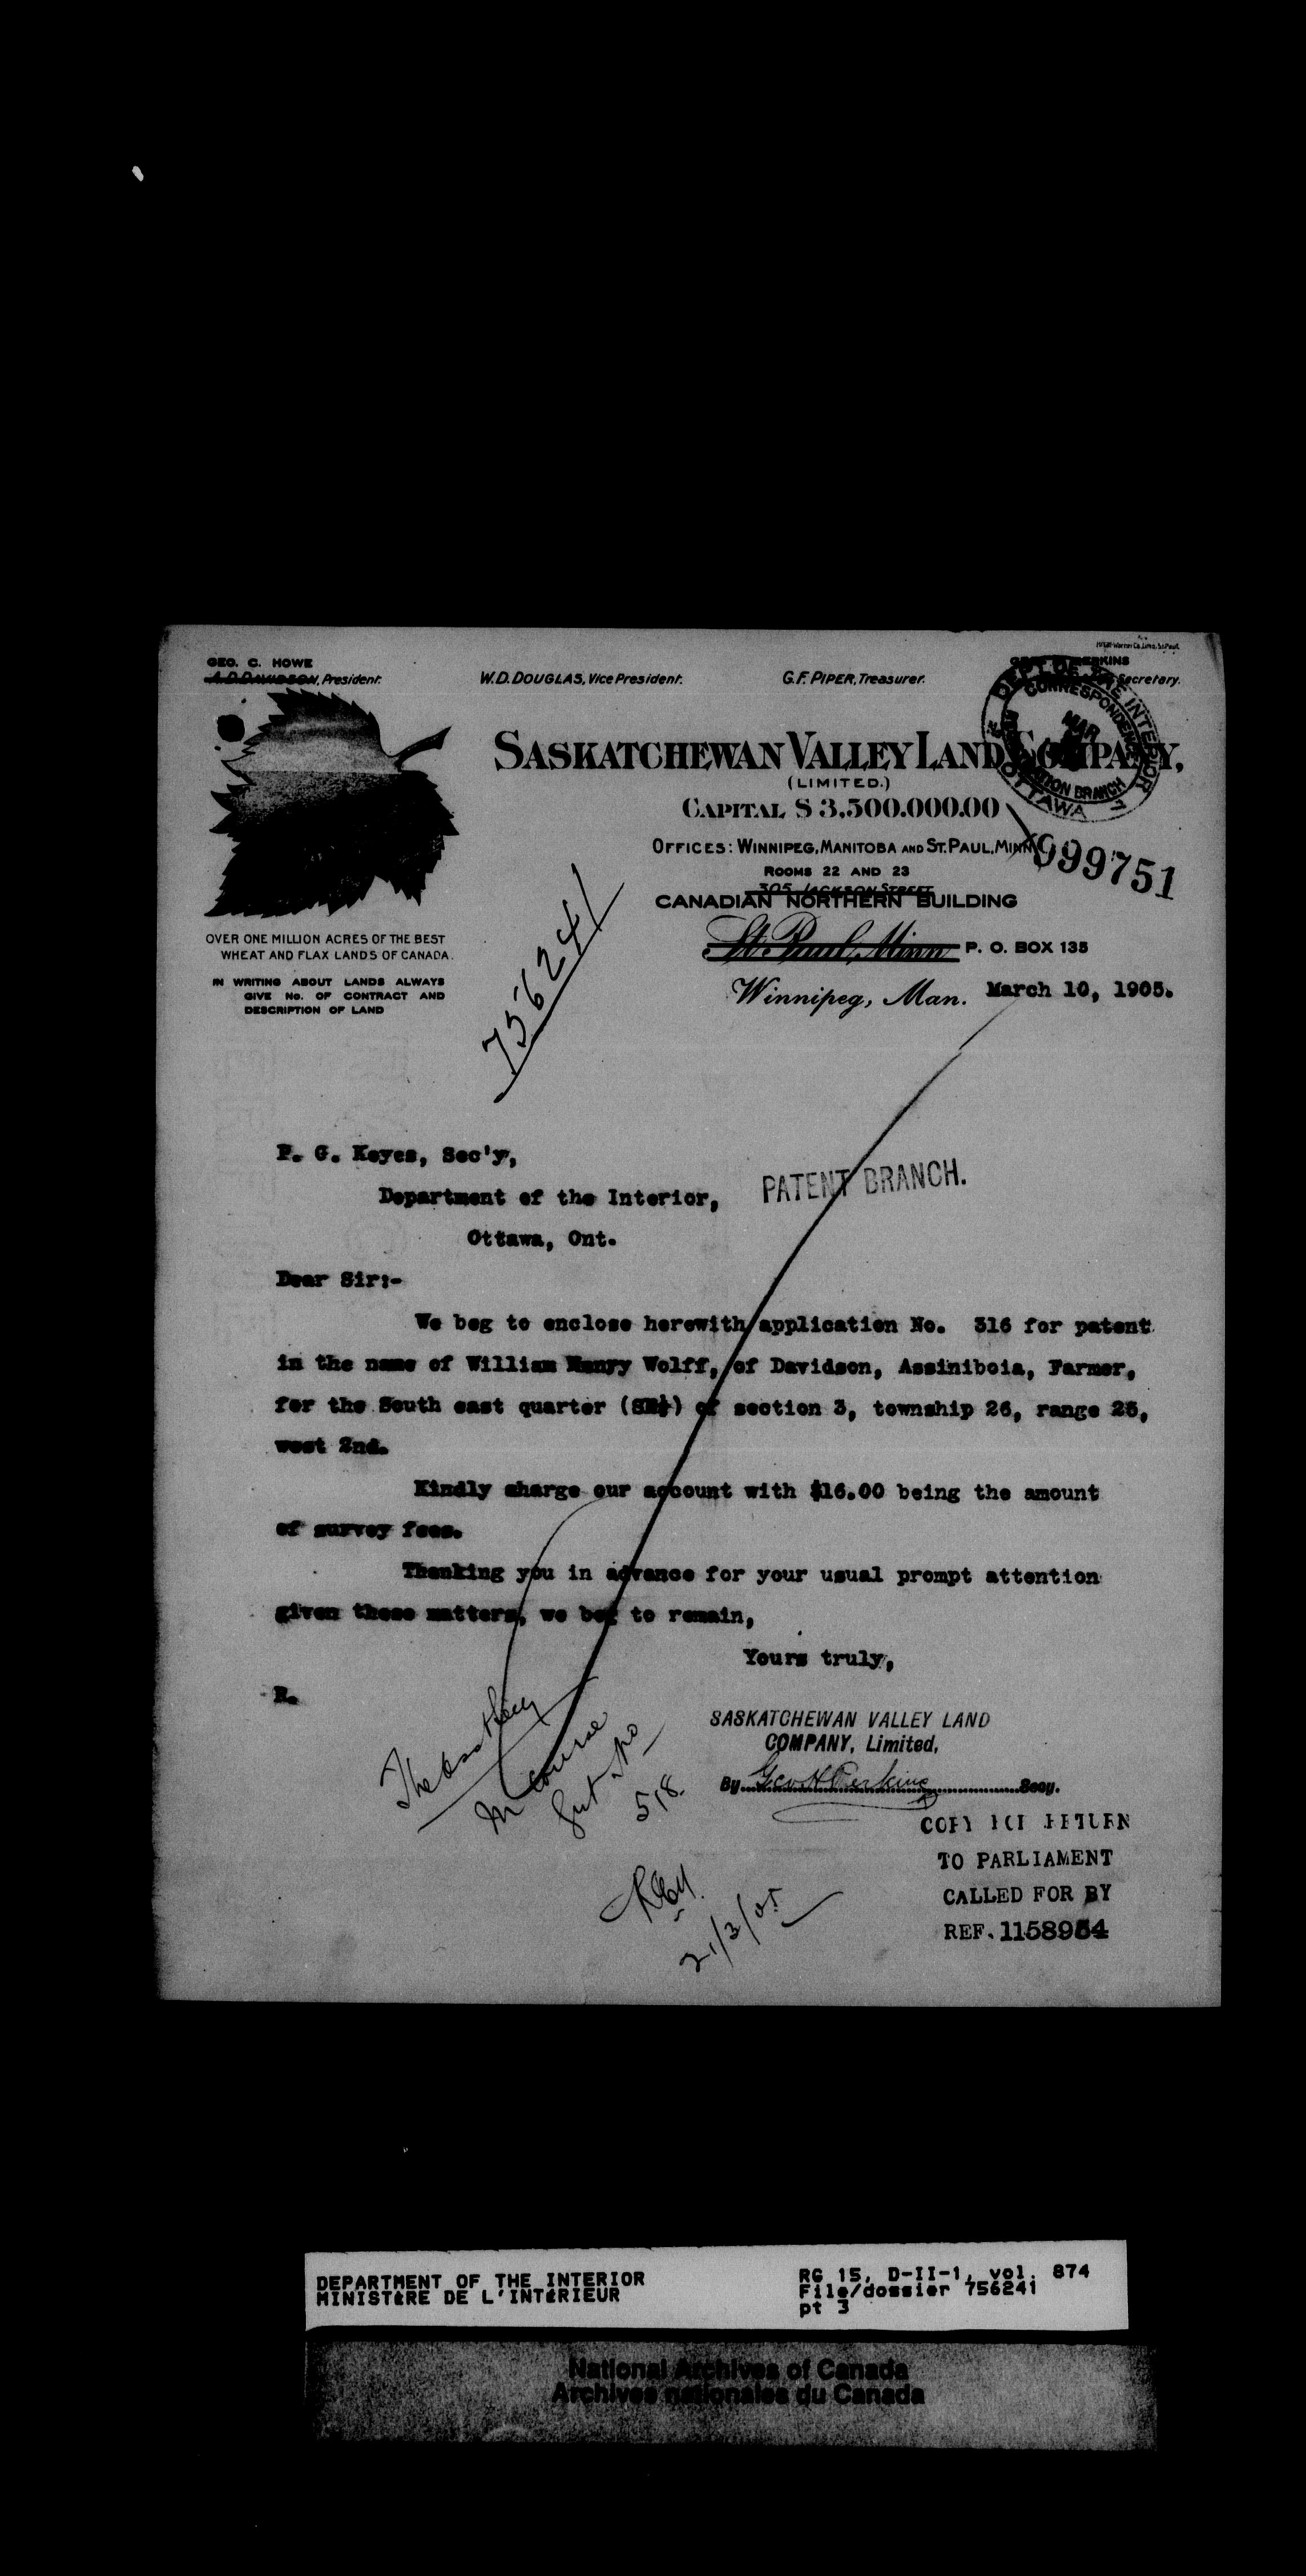 GEO. C. HOWE
A.D. DAVIDSON, President.
W.D. DOUGLAS, Vice President.
G.F. PIPER, Treasurer.
PERKINS
Secretary.
DEPT OF THE INTERIOR
CORRESPONDENCE
MAR
BRANCH
OTTAWA
SASKATCHEWAN VALLEY LAND COMPANY,
(LIMITED.)
CAPITAL $3,500.000.00
OFFICES: WINNIPEG, MANITOBA AND ST. PAUL, MINN.
999751
ROOMS 22 AND 23
305 JACKSON STREET
CANADIAN NORTHERN BUILDING
OVER ONE MILLION ACRES OF THE BEST
WHEAT AND FLAX LANDS OF CANADA.
St. Paul, Minn. P. O. BOX 135
IN WRITING ABOUT LANDS ALWAYS
GIVE No. OF CONTRACT AND
DESCRIPTION OF LAND
756241
Winnipeg, Man. March 10, 1905.
P. G. Keyes, Sec'y,
Department of the Interior,
Ottawa, Ont.
PATENT BRANCH.
Dear Sir:-
We beg to enclose herewith application No. 316 for patent
in the name of William Henry Wolff, of Davidson, Assiniboia, Farmer,
for the South east quarter (SE¼) of section 3, township 26, range 25,
west 2nd.
Kindly charge our account with $16.00 being the amount
of survey fees.
Thanking you in advance for your usual prompt attention
given these matters, we beg to remain,
Yours truly,
R.
SASKATCHEWAN VALLEY LAND
COMPANY, Limited,
By Geo H Perkins Secy.
In course
518
21/3/05
COPY FOR RETURN
TO PARLIAMENT
CALLED FOR BY
REF. 1158954
DEPARTMENT OF THE INTERIOR
MINISTÈRE DE L'INTÉRIEUR
RG 15, D-II-1, vol. 874
File/dossier 756241
pt 3
National Archives of Canada
Archives nationales du Canada